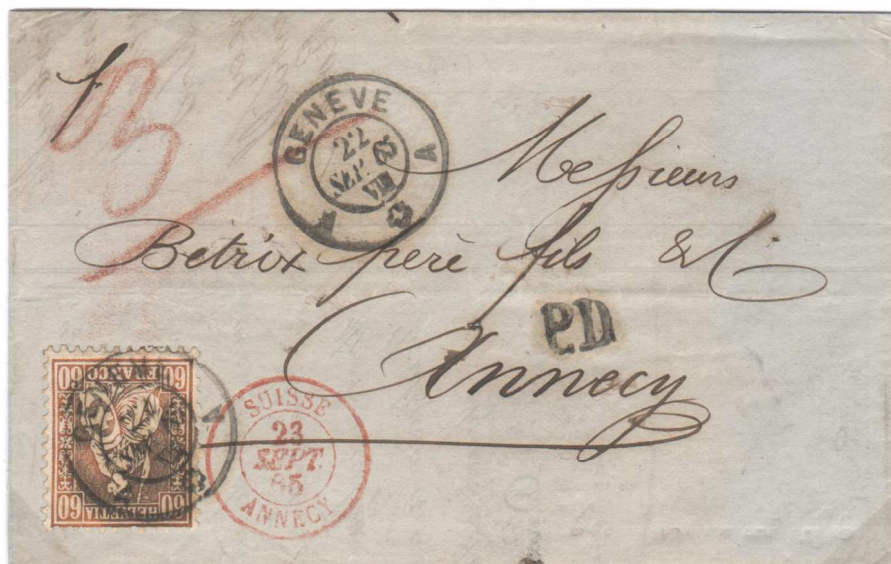 GENÈVE
22
SEP. 65
VIII
A
Messieurs
Betrix père fils & C
P.D
Annecy
60 FRANCO 60
60 HELVETIA 60
SUISSE
23
SEPT.
65
ANNECY